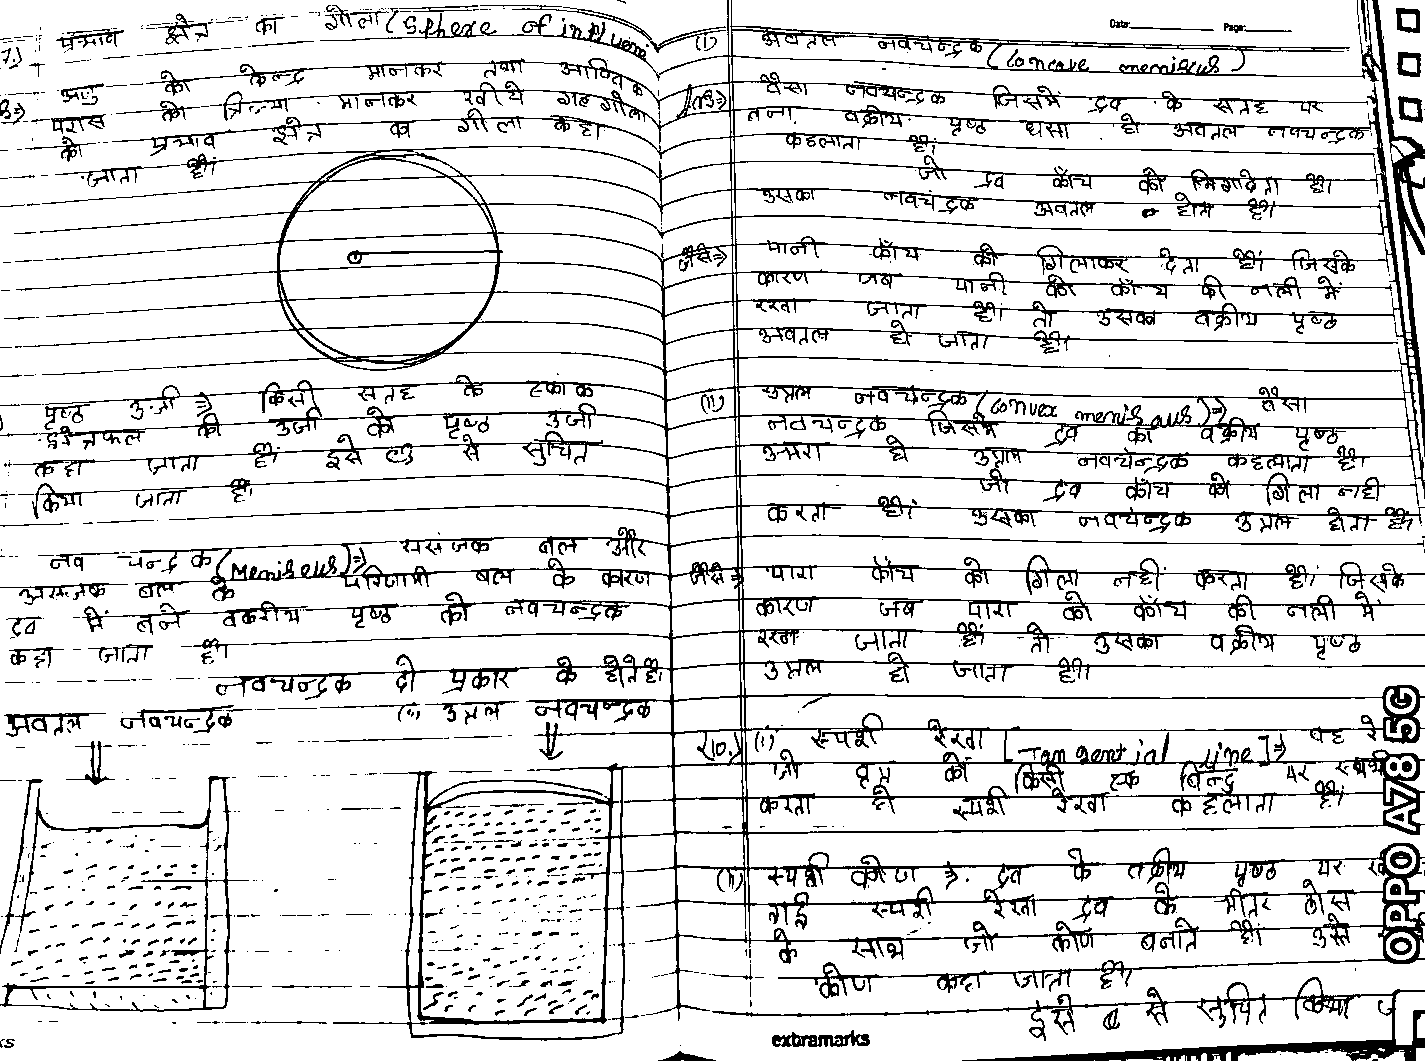 7.) प्रभाव क्षेत्र का गोला (Sphere of influen
अणु को केन्द्र मानकर तथा आण्विक
परास को त्रिज्या मानकर खींचे गई गोला
को प्रभाव क्षेत्र का गोला कहा
जाता है।
पृष्ठ उर्जा ⇒ किसी सतह के एकांक
क्षेत्रफल की उर्जा को पृष्ठ उर्जा
कहा जाता है। इसे से सुचित
किया जाता है।
नव चन्द्रक (Meniscus) ⇒ ससंजक बल और
असंजक बल के परिणामी बल के कारण
द्रव में बने वक्रीय पृष्ठ को नवचन्द्रक
कहा जाता है।
नवचन्द्रक दो प्रकार के होते है।
अवतल नवचन्द्रक (ii) उत्तल नवचन्द्रक
Date: Page:
(i) अवतल नवचन्द्रक (Concave meniscus)
वैसा नवचन्द्रक जिसमें द्रव के सतह पर
बना वक्रीय पृष्ठ धसा हो अवतल नवचन्द्रक
कहलाता है।
जो द्रव काँच को भिगादेता है।
उसका नवचंद्रक अवतल होता है।
जैसे⇒ पानी काँच को गिलाकर देता है। जिसके
कारण जब पानी को काँच की नली में
रखा जाता है। तो उसका वक्रीय पृष्ठ
अवतल हो जाता है।
(ii) उत्तल नवचन्द्रक (Convex meniscus) ⇒ वैसा
नवचन्द्रक जिसमें द्रव का वक्रीय पृष्ठ
उभरा हो उत्तल नवचन्द्रक कहलाता है।
जो द्रव काँच को गिला नही
करता है। उसका नवचन्द्रक उत्तल होता है।
जैसे⇒ पारा काँच को गिला नहीं करता है। जिसके
कारण जब पारा को काँच की नली में
रखा जाता है। तो उसका वक्रीय पृष्ठ
उत्तल हो जाता है।
(10.) (i) स्पर्शी रेखा [Tangential line] ⇒ वह रे
जो वृत्त को किसी एक बिन्दु पर स्पर्श
करता हो स्पर्शी रेखा कहलाता है।
(ii) स्पर्शी कोण ⇒ द्रव के वक्रीय पृष्ठ पर
गई स्पर्शी रेखा द्रव के भीतर ठोस
के साथ जो कोण बनाते है। उसे
कोण कहा जाता है।
इसे से सुचित किया
extramarks
OPPO A78 5G